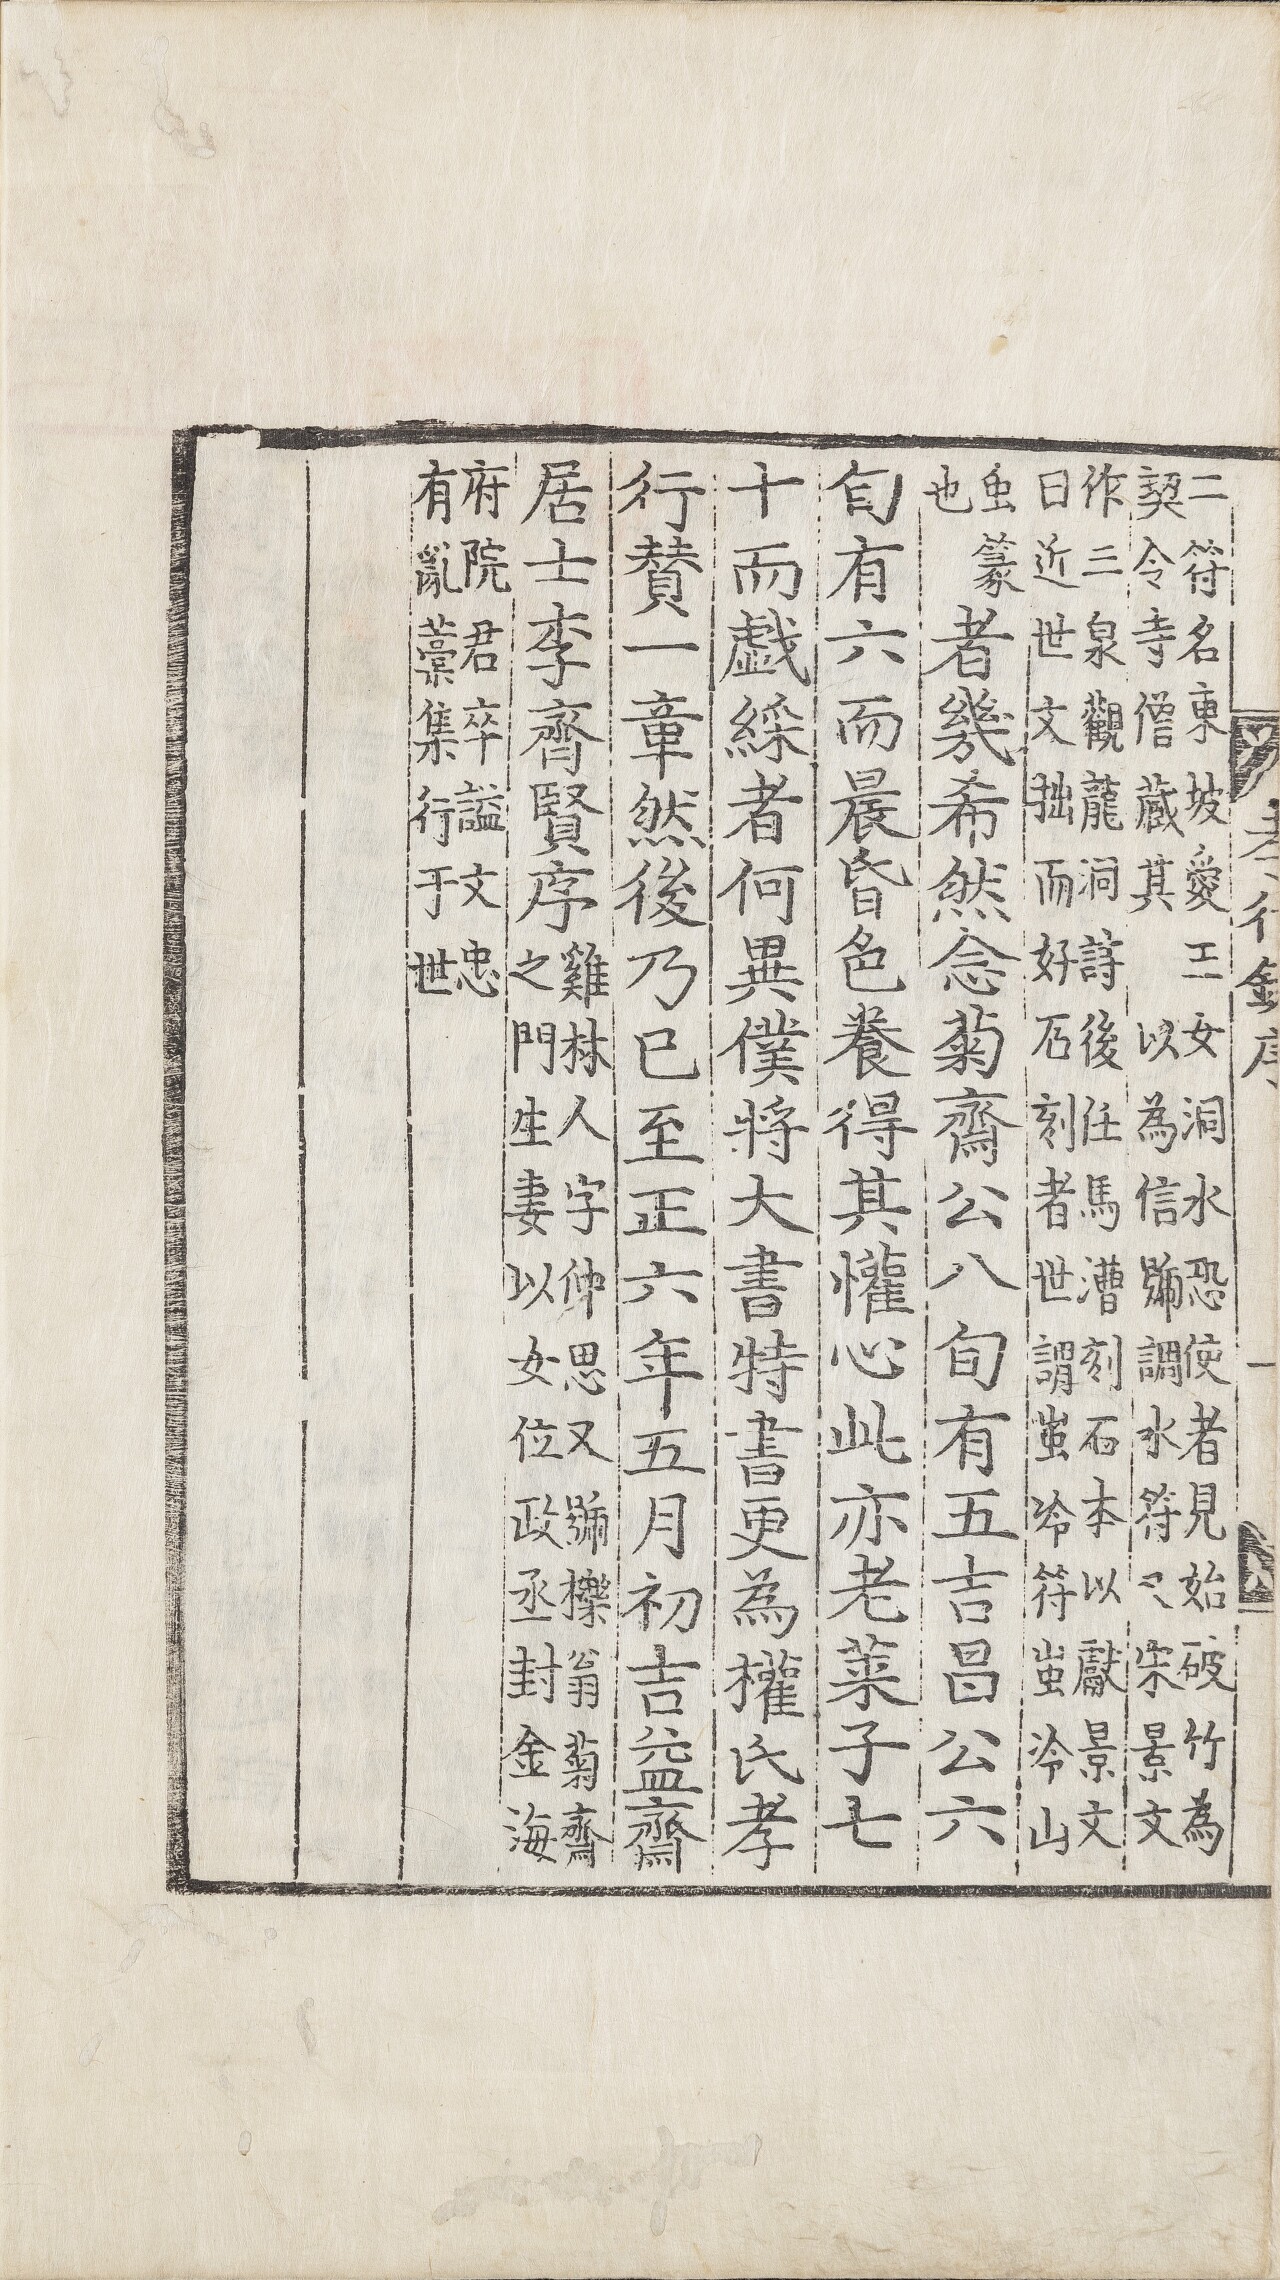 孝行錄序 一
二符名東坡愛工女洞水恐使者見始破竹為
契令寺僧藏其 以為信號調水符〻宋景文
作三泉觀龍洞詩後任馬漕刻石本以獻景文
曰近世文拙而好石刻者世謂蚩冷符蚩冷山
虫篆
也
者幾希然念菊齋公八旬有五吉昌公六
旬有六而晨昏色養得其懽心此亦老菜子七
十而戯綵者何異僕將大書特書更為權氏孝
行賛一章然後乃已至正六年五月初吉益齋
居士李齊賢序
雞林人字仲思又號櫟翁菊齋
之門生妻以女位政丞封金海
府院君卒謚文忠
有亂藁集行于世